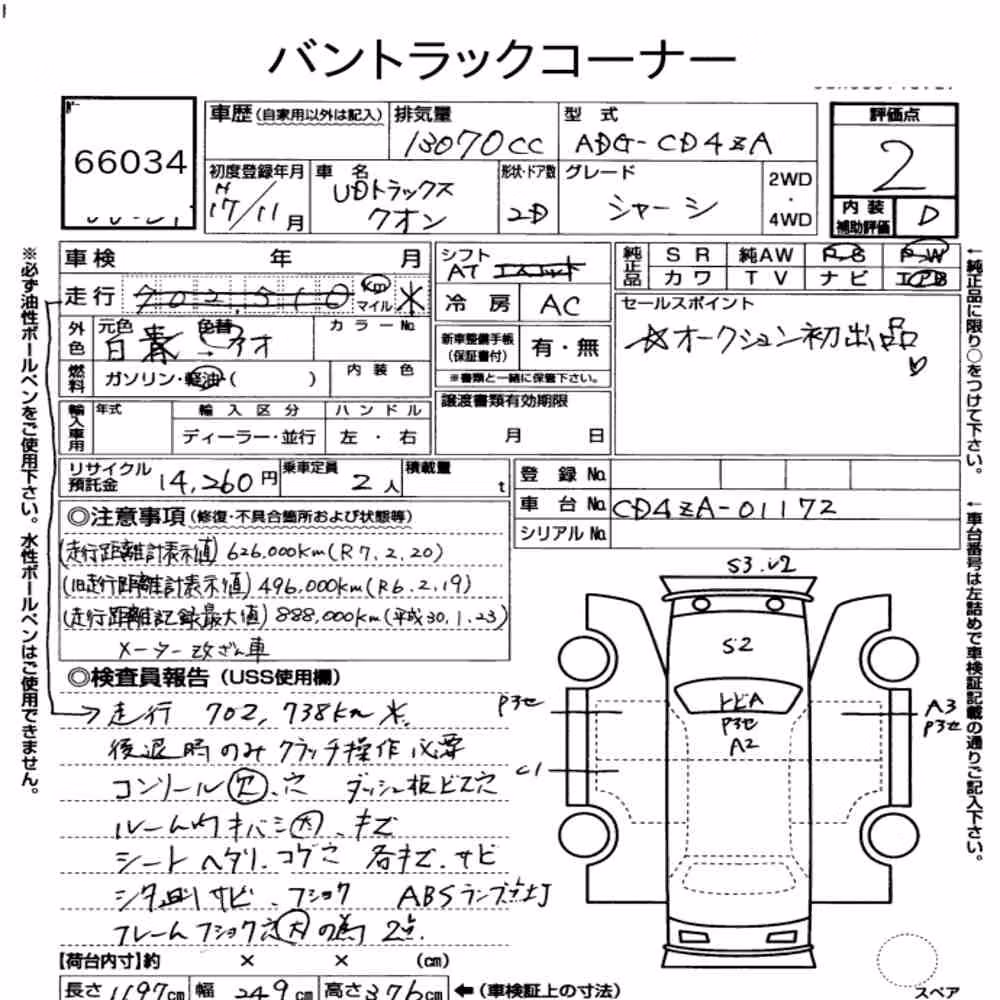 バントラックコーナー
66034
車歴(自家用以外は記入)
排気量
13070cc
型式
ADG-CD4ZA
評価点
2
内装補助評価
D
初度登録年月
H17/11月
車名
UDトラックス
クオン
形状・ドア数
2D
グレード
シャーシ
2WD
・
4WD
車検 年 月
走行
Km
マイル
※
外色
元色
色替
カラーNo.
白
燃料
ガソリン・軽油・( )
内装色
輸入車用
年式
輸入区分
ハンドル
ディーラー・並行
左・右
シフト
AT
冷房
AC
新車整備手帳
(保証書付)
有・無
※書類と一緒に保管下さい。
譲渡書類有効期限
月 日
純正品
SR 純AW P・S P・W
カワ TV ナビ エアB
セールスポイント
☆オークション初出品♡
リサイクル預託金
14,260円
乗車定員
2人
積載量
t
登録No.
車台No.
CD4ZA-01172
シリアルNo.
◎注意事項(修復・不具合箇所および状態等)
(走行距離計表示値)626,000km(R7.2.20)
(旧走行距離計表示値)496,000km(R6.2.19)
(走行距離記録最大値)888,000km(平成30.1.23)
メーター改ざん車
◎検査員報告(USS使用欄)
→走行 702,738km※.
後退時のみクラッチ操作必要
コンソール欠、穴 ダッシュ板ビス穴
ルーム内キバミ大、キズ
シートヘタリ.コゲ 各キズ.サビ
シタ回りサビ.フショク ABSランプ点灯
フレームフショク大の為2点.
【荷台内寸】約 × × (cm)
長さ1197cm 幅249cm 高さ376cm ←(車検証上の寸法)
S3.U2
S2
トビA
P3セ
A2
P3セ
C1
A3
P3セ
スペア
※必ず油性ボールペンをご使用下さい。水性ボールペンはご使用できません。
←純正品に限り○をつけて下さい。
←車台番号は左詰めで車検証記載の通りご記入下さい。